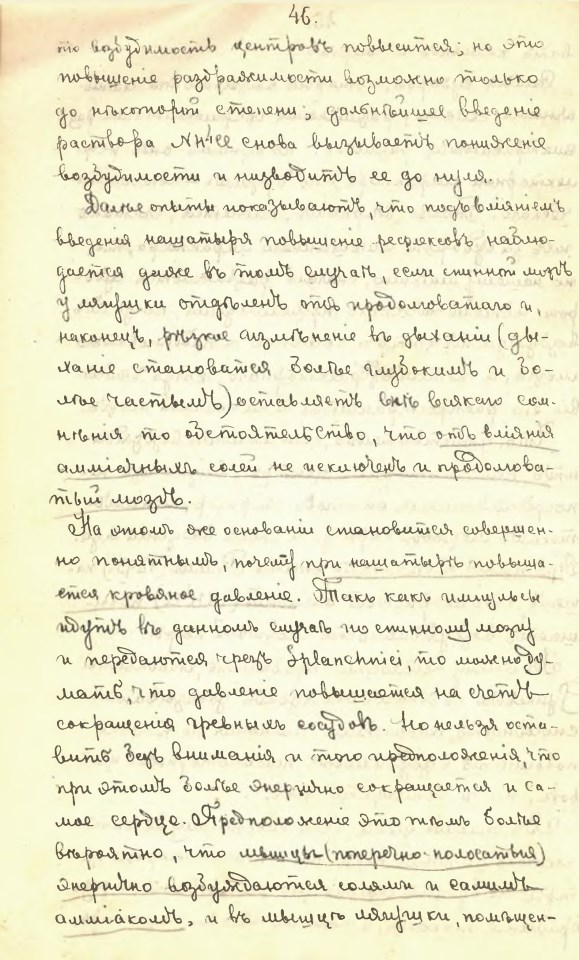 46.
то возбудимость центровъ повысится; но это
повышеніе раздражимости возможно только
до нѣкоторой степени; дальнѣйшее введеніе
раствора NH4Cl снова вызываетъ пониженіе
возбудимости и низводитъ ее до нуля.
Далѣе опыты показываютъ, что подъ вліяніемъ
введенія нашатыря повышеніе рефлексовъ наблю-
дается даже въ томъ случаѣ, если спинной мозгъ
у лягушки отдѣленъ отъ продолговатаго и,
наконецъ, рѣзкое измѣненіе въ дыханіи (ды-
ханіе становится болѣе глубокимъ и бо-
лѣе частымъ) оставляетъ внѣ всякаго сом-
нѣнія то обстоятельство, что отъ вліянія
амміачныхъ солей не исключенъ и продолгова-
тый мозгъ.
На этомъ же основаніи становится совершен-
но понятнымъ, почему при нашатырѣ повыша-
ется кровяное давленіе. Такъ какъ импульсы
идутъ въ данномъ случаѣ по спинному мозгу
и передаются чрезъ Splanchnici, то можно ду-
мать, что давленіе повышается на счетъ
сокращенія чревныхъ сосудовъ. Но нельзя оста-
вить безъ вниманія и того предположенія, что
при этомъ болѣе энергично сокращается и са-
мое сердце. Предположеніе это тѣмъ болѣе
вѣроятно, что мышцы (поперечно-полосатыя)
энергично возбуждаются солями и самимъ
амміакомъ, и въ мышцѣ лягушки, помѣщен-